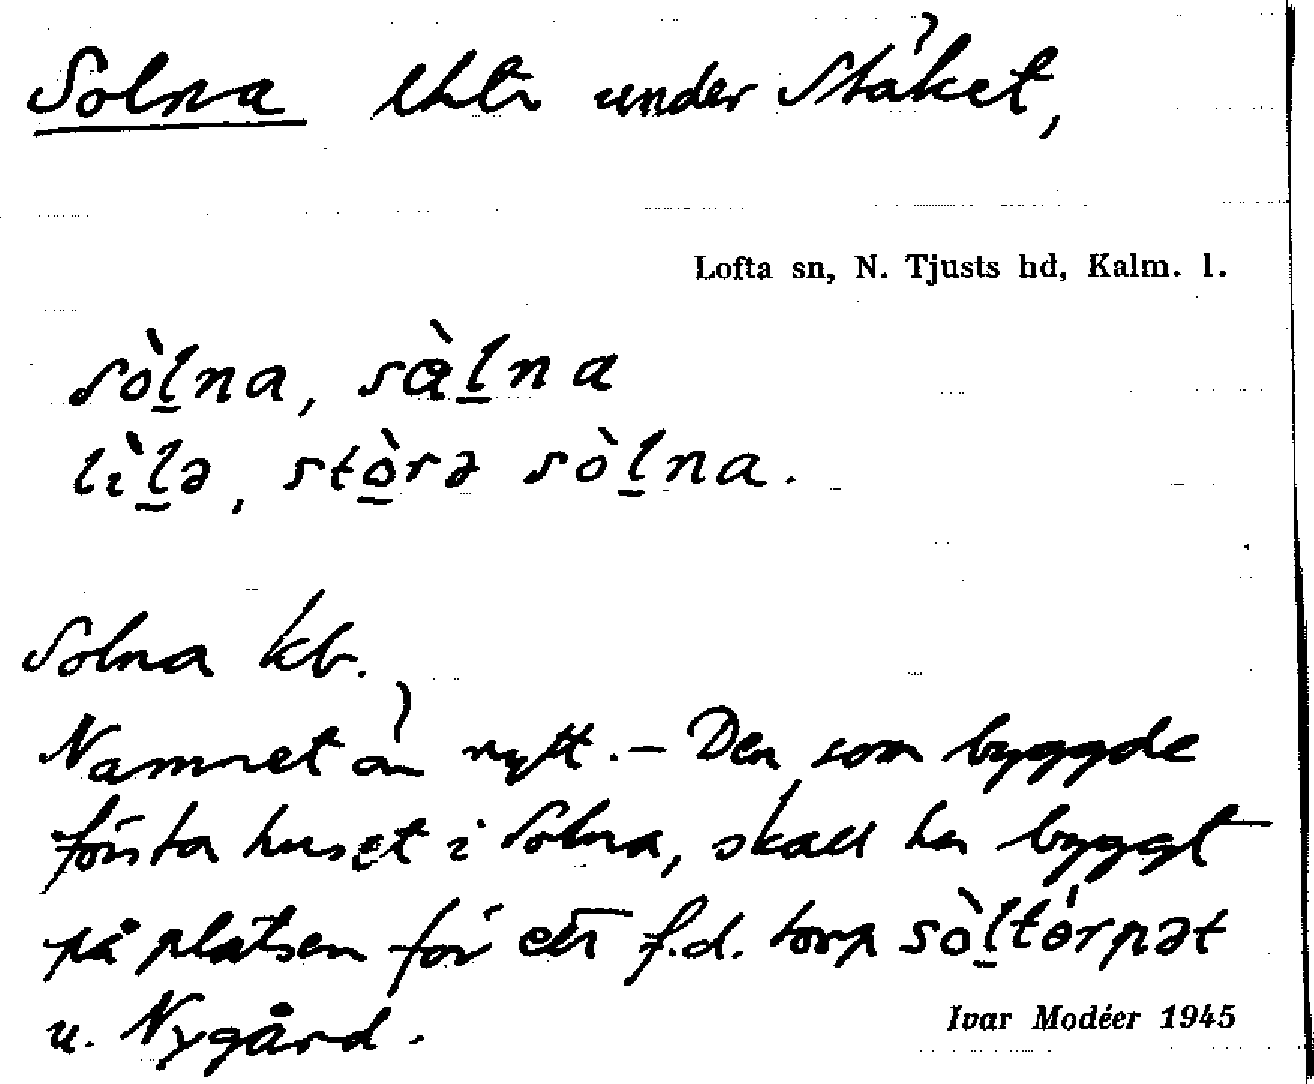 Solna lht under Stäket,
Lofta sn, N. Tjusts hd, Kalm. l.
sòl̲na, sàl̲na
lìl̲ə, stò̲rə sòl̲na.
Solna kb.
Namnet är nytt. – Den som byggde
första huset i Solna, skall ha byggt
på platsen för ett f.d. torp sòl̲tórpət
u. Nygård.
Ivar Modéer 1945